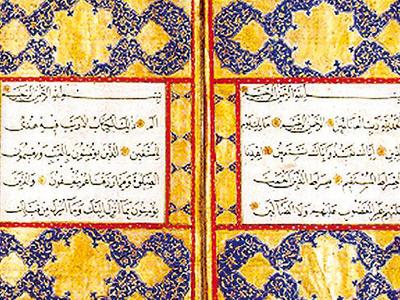 بسم الله الرحمن الرحيم
لله رب العالمين الرحمن الرحيم مالك يوم
اياك نعبد واياك نستعين
الصراط المستقيم صراط الذين
غير المغضوب عليهم ولا الضالين
بسم الله الرحمن الرحيم
الم ذلك الكتاب لا ريب فيه هدى
للمتقين الذين يؤمنون بالغيب ويقيمون
الصلوة ومما رزقناهم ينفقون والذين
يؤمنون بما انزل اليك وما انزل من قبلك